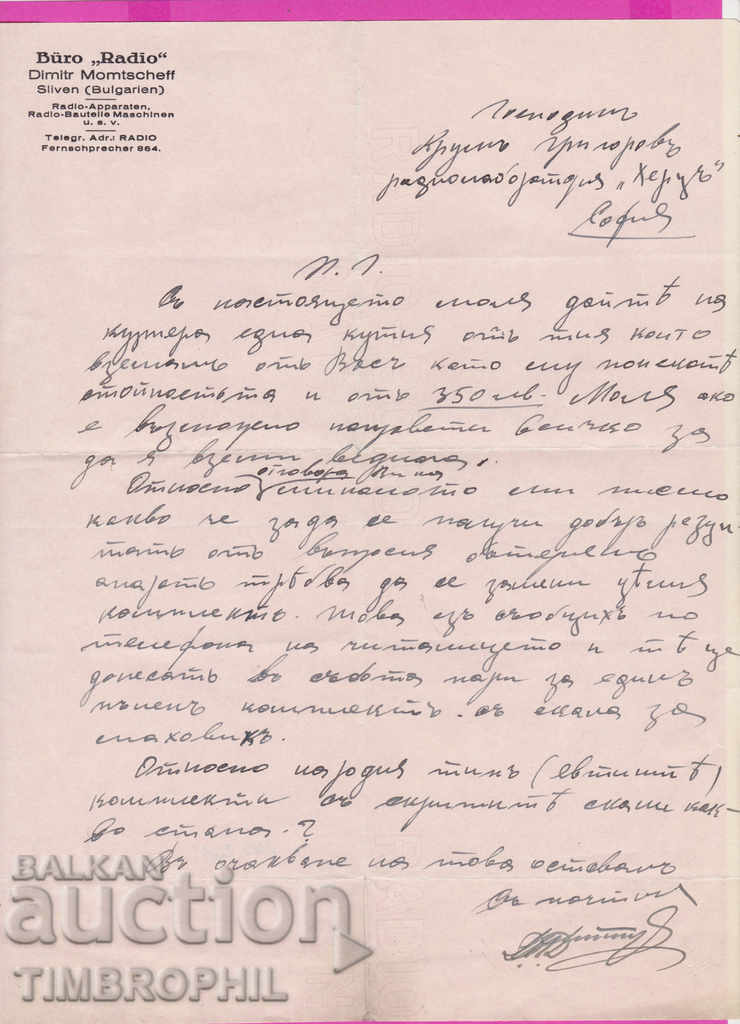 Büro „Radio“
Dimitr Momtscheff
Sliven (Bulgarien)
Radio-Apparaten,
Radio-Bauteile Maschinen
u. s. v.
Telegr. Adr.: RADIO
Fernschprecher 864.
Господинъ
Крумъ Григоровъ
радиолаборатория „Херцъ“
София
П. Г.
Съ настоящето моля дайтѣ на
куриера една кутия отъ тия които
вземамъ отъ Васъ като му поискатѣ
стойностьта и отъ 350 лв. Моля ако
е възможно направети всичко за
да я вземи веднага.
Относно отговора Ви на миналото ми писмо
какво че за да се получи добъръ резул-
татъ отъ въпросния
апаратъ трѣбва да се замени цѣлия
комплектъ. Това азъ съобщихъ по
телефона на читалището и тѣ ще
донесатъ въ събота пари за единъ
пъленъ комплектъ съ скала за
маховикъ.
Относно народия типъ (евтинитѣ)
комплекти съ скритѣ скали как-
во стана?
Въ очакване на това оставамъ
Съ почитъ
BALKAN
auction
TIMBROPHIL